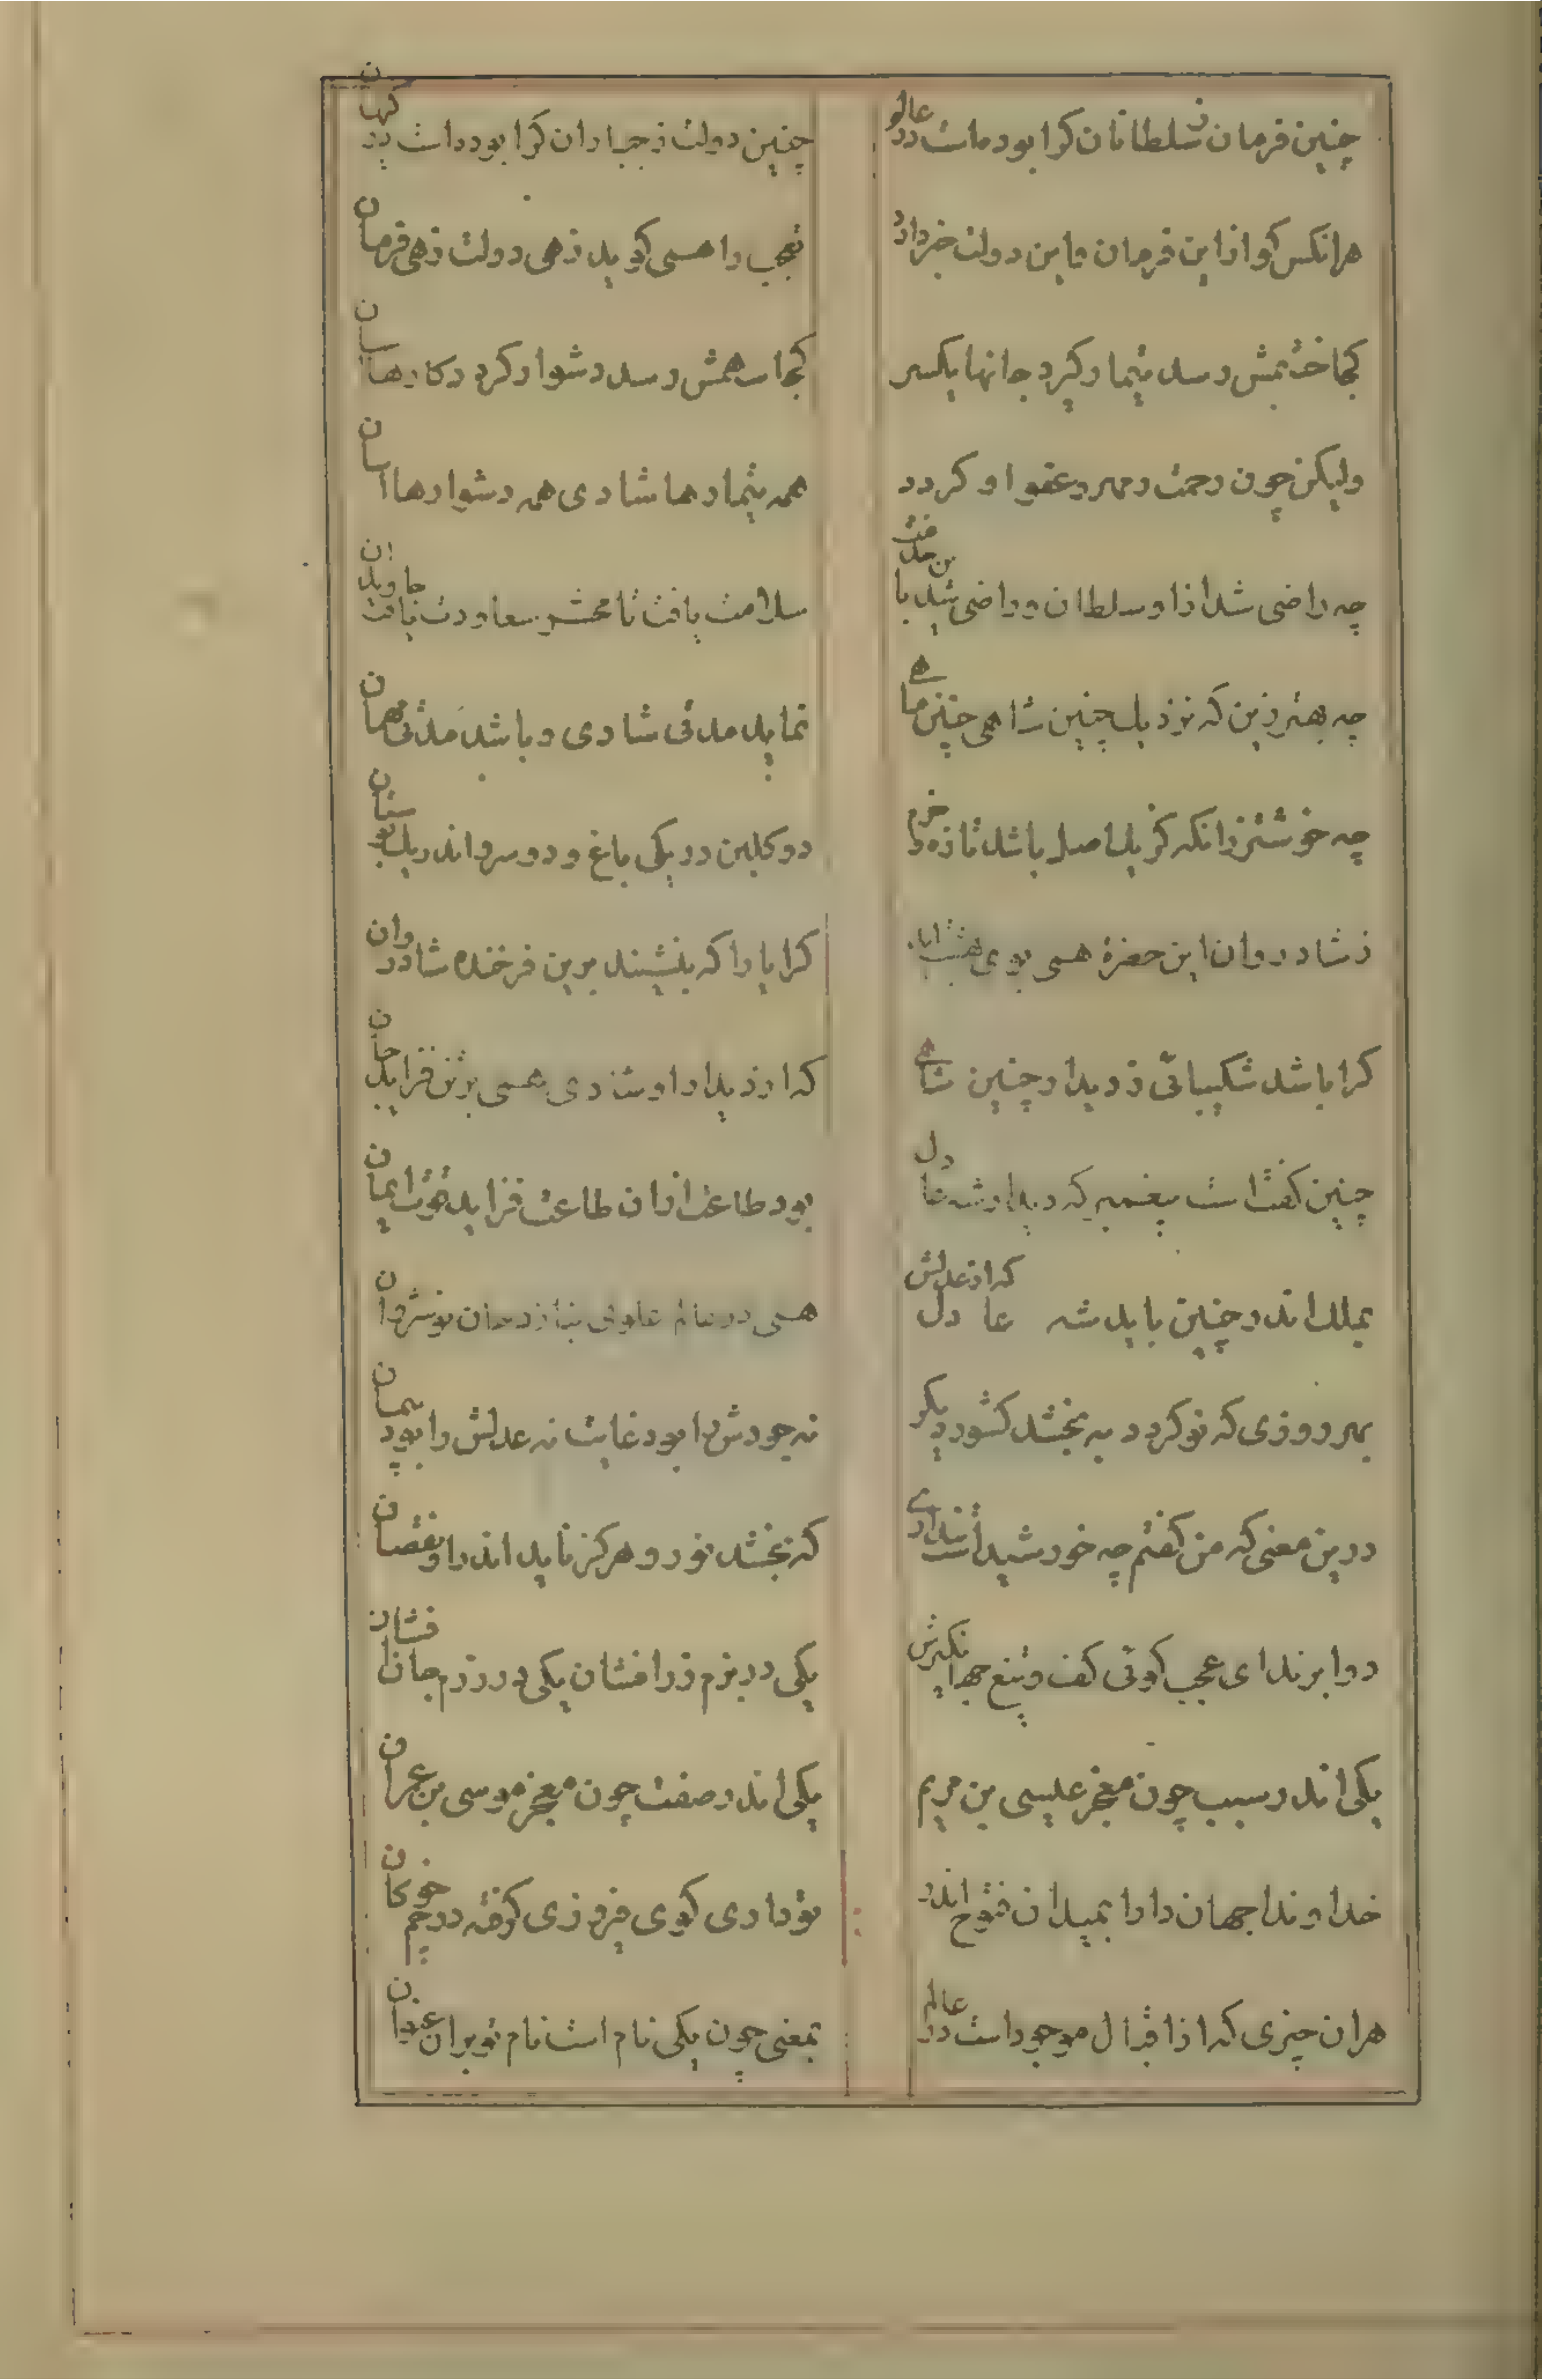 چنین فرمان ز سلطانان کرا بود است در عالم
چنین دولت ز جباران کرا بود است در کیهان
هرانکس کو ازاین فرمان واین دولت خبر دارد
تعجب را همی کوید زهی دولت زهی فرمان
کجا خشمش رسد تیمار کیرد جانها یکسر
کجا سهمش رسد دشوار کردد کارها اسان
ولیکن چون رحمت و مهر و عفو او کردد
همه تیمارها شادی همه دشوارها اسان
چه راضی شد ازاو سلطان و راضی شد
سلامت یافت تا محشر سعادت یافت جاویدان
چه بهتر زین که نزدیک چنین شاهی چنین ماهی
نماید مدتی شادی و باشد مدتی مهمان
چه خوشتر زانکه کز یک اصل باشد تازه و خرم
دو کلبن در یکی باغ و دو سرو اندر یک بستان
ز شادروان این حضرة همی بوی بهشت اید
کرا یارا که بنشیند برین فرخنده شادروان
کرا باشد شکیبائی ز دیدار چنین شاهی
که از دیدار او شادی همی بر تن فزاید جان
چنین کفت است پیغمبر که دیدار شه عادل
بود طاعت ازان طاعت فزاید قوت ایمان
بملک اندر چنین باید شه عادل که از عدلش
همی در عالم علوی بنازد جان نوشروان
بهر روزی که نو کردد به بخشد کشور دیکر
نه جودش را بود غایت نه عدلش را بود پیمان
درین معنی که من کفتم چه خورشید است پنداری
که بخشد نور و هرکز ناید اندر او نقصان
دو ابرند ای عجب کوئی کف و تیغ جهانکیرش
یکی در بزم زر افشان یکی در رزم جان افشان
یکی اندر سبب چون معجز عیسی بن مریم
یکی اندر صفت چون معجز موسی بن عمران
خداوندا جهان دارا بمیدان فتوح اندر
تو داری کوی فیروزی کرفته در خم چوکان
هران چیزی که از اقبال موجود است در عالم
بمعنی چون یکی نام است نام تو بران عنوان